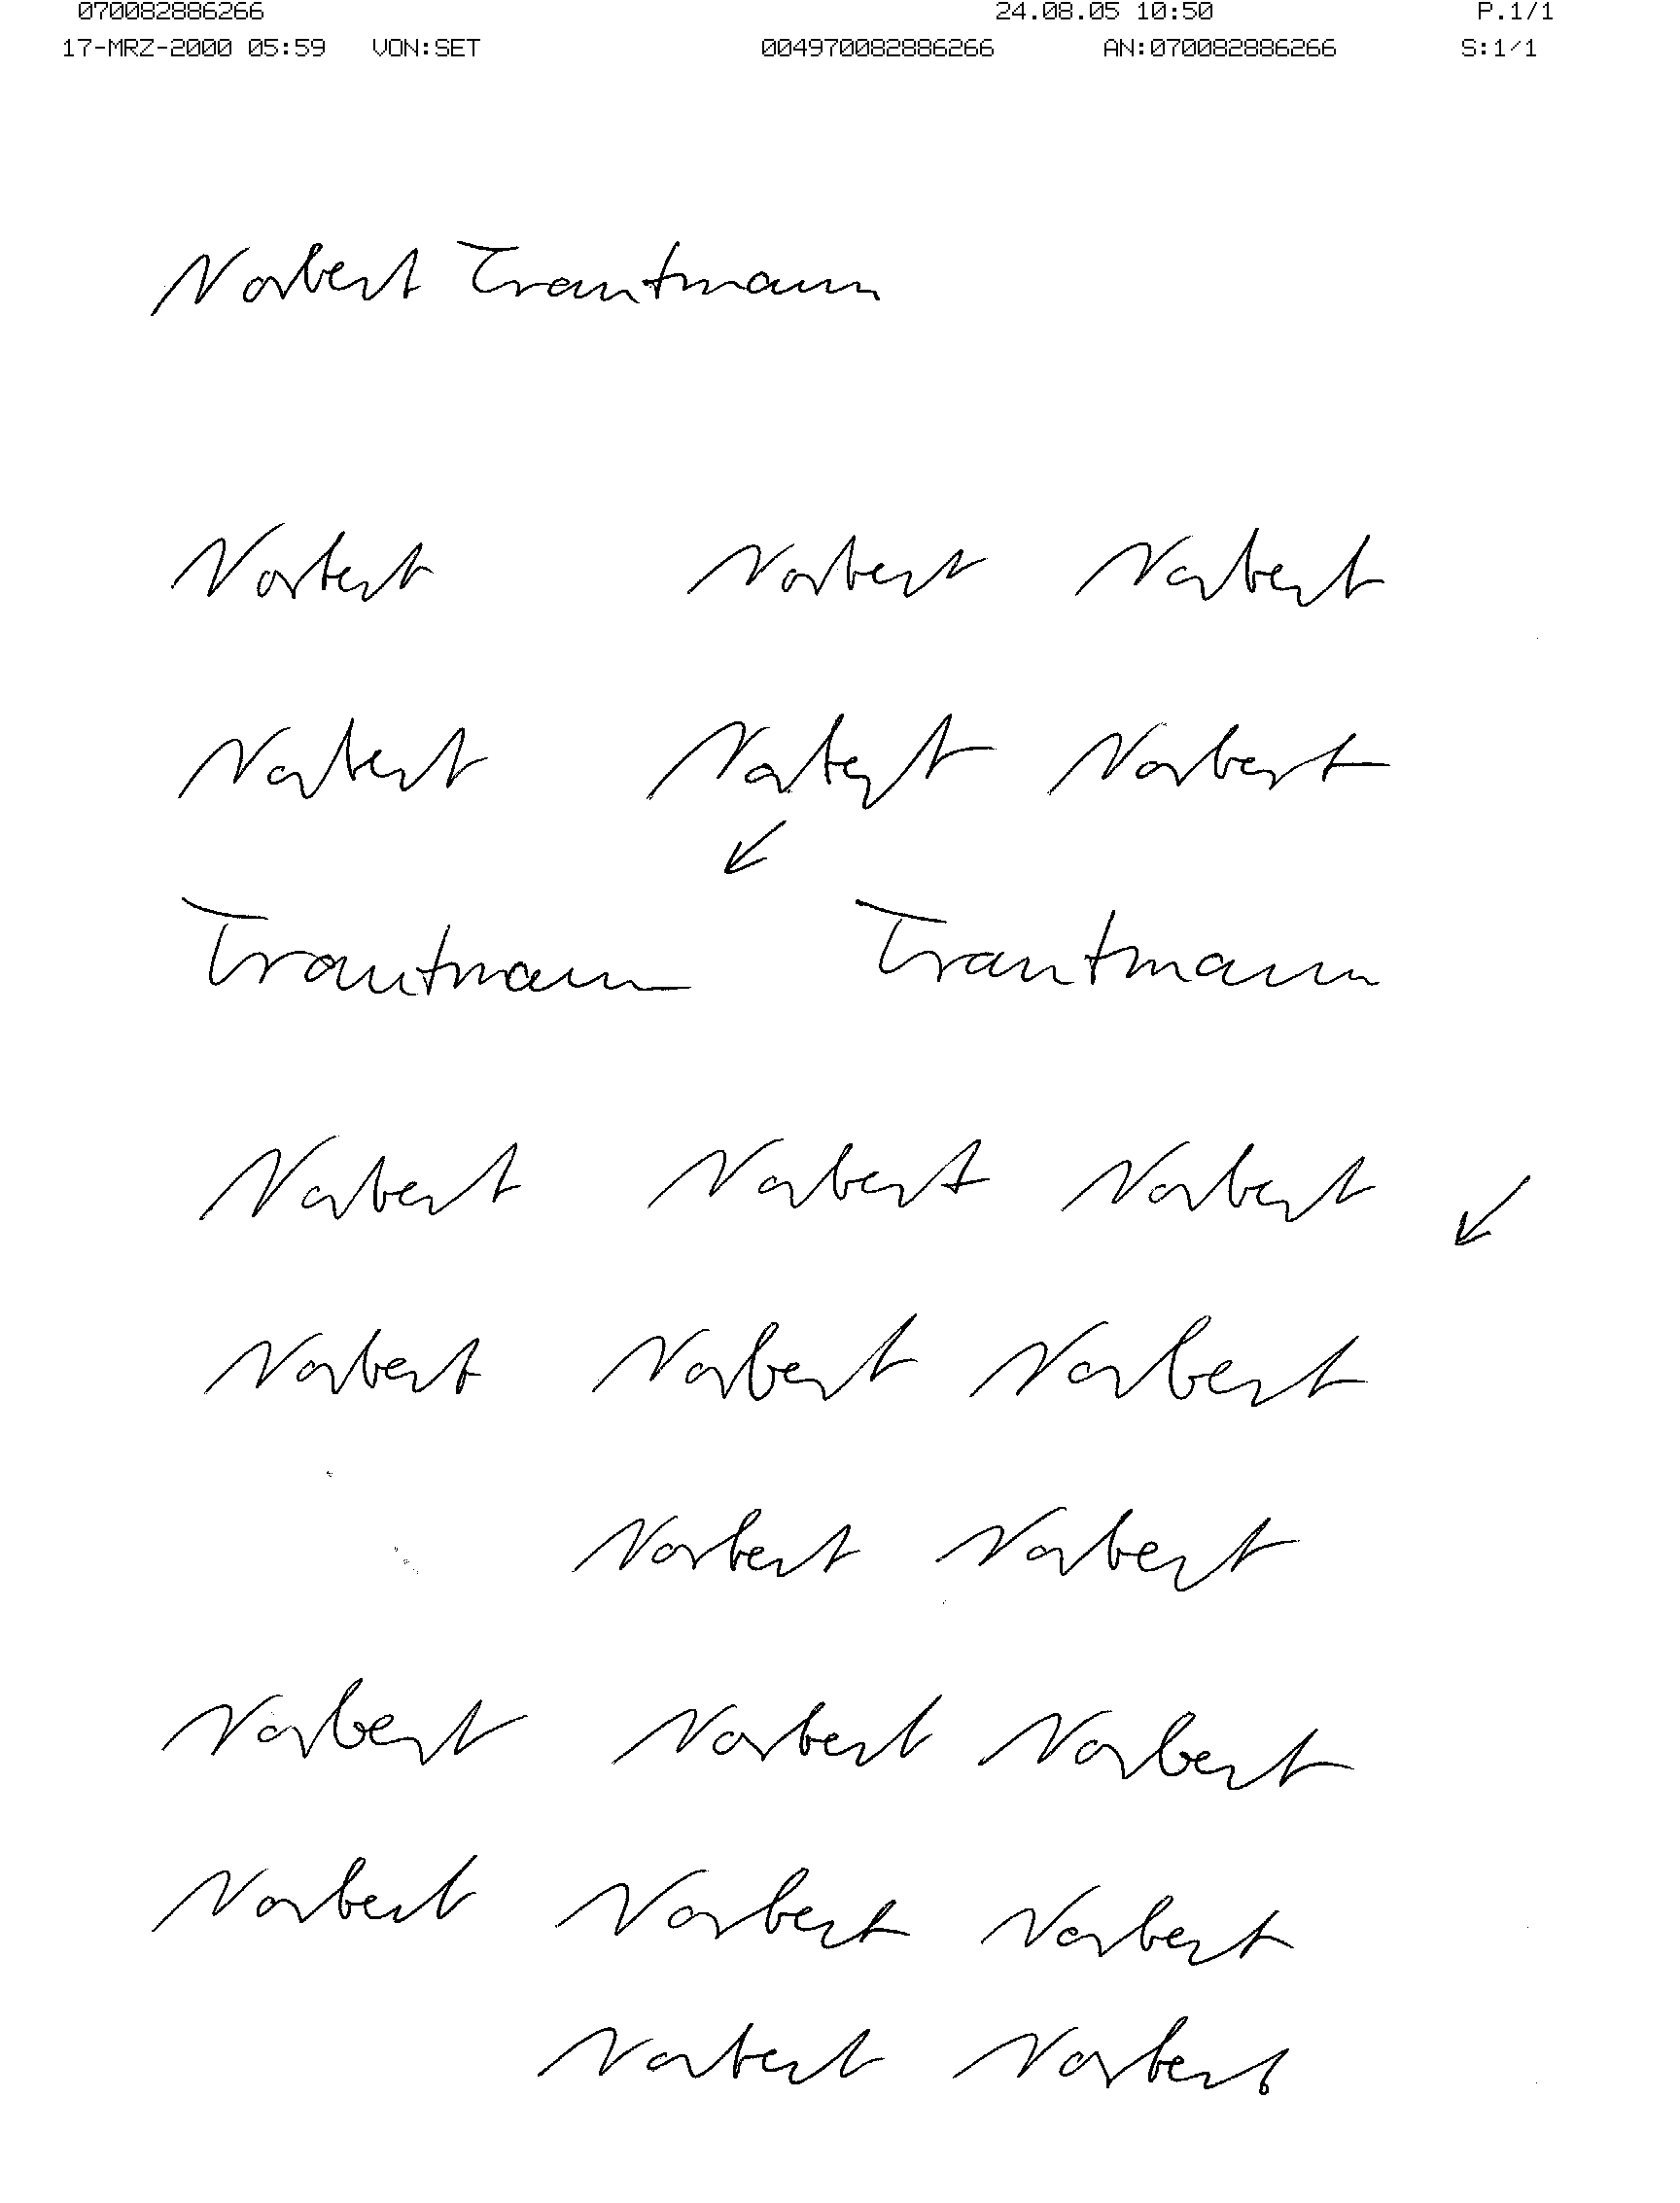 070082886266 24.08.05 10:50 P.1/1
17-MRZ-2000 05:59 VON:SET 004970082886266 AN:070082886266 S:1/1
Norbert Trautmann
Norbert Norbert Norbert
Norbert Norbert Norbert
Trautmann Trautmann
Norbert Norbert Norbert
Norbert Norbert Norbert
Norbert Norbert
Norbert Norbert Norbert
Norbert Norbert Norbert
Norbert Norbert